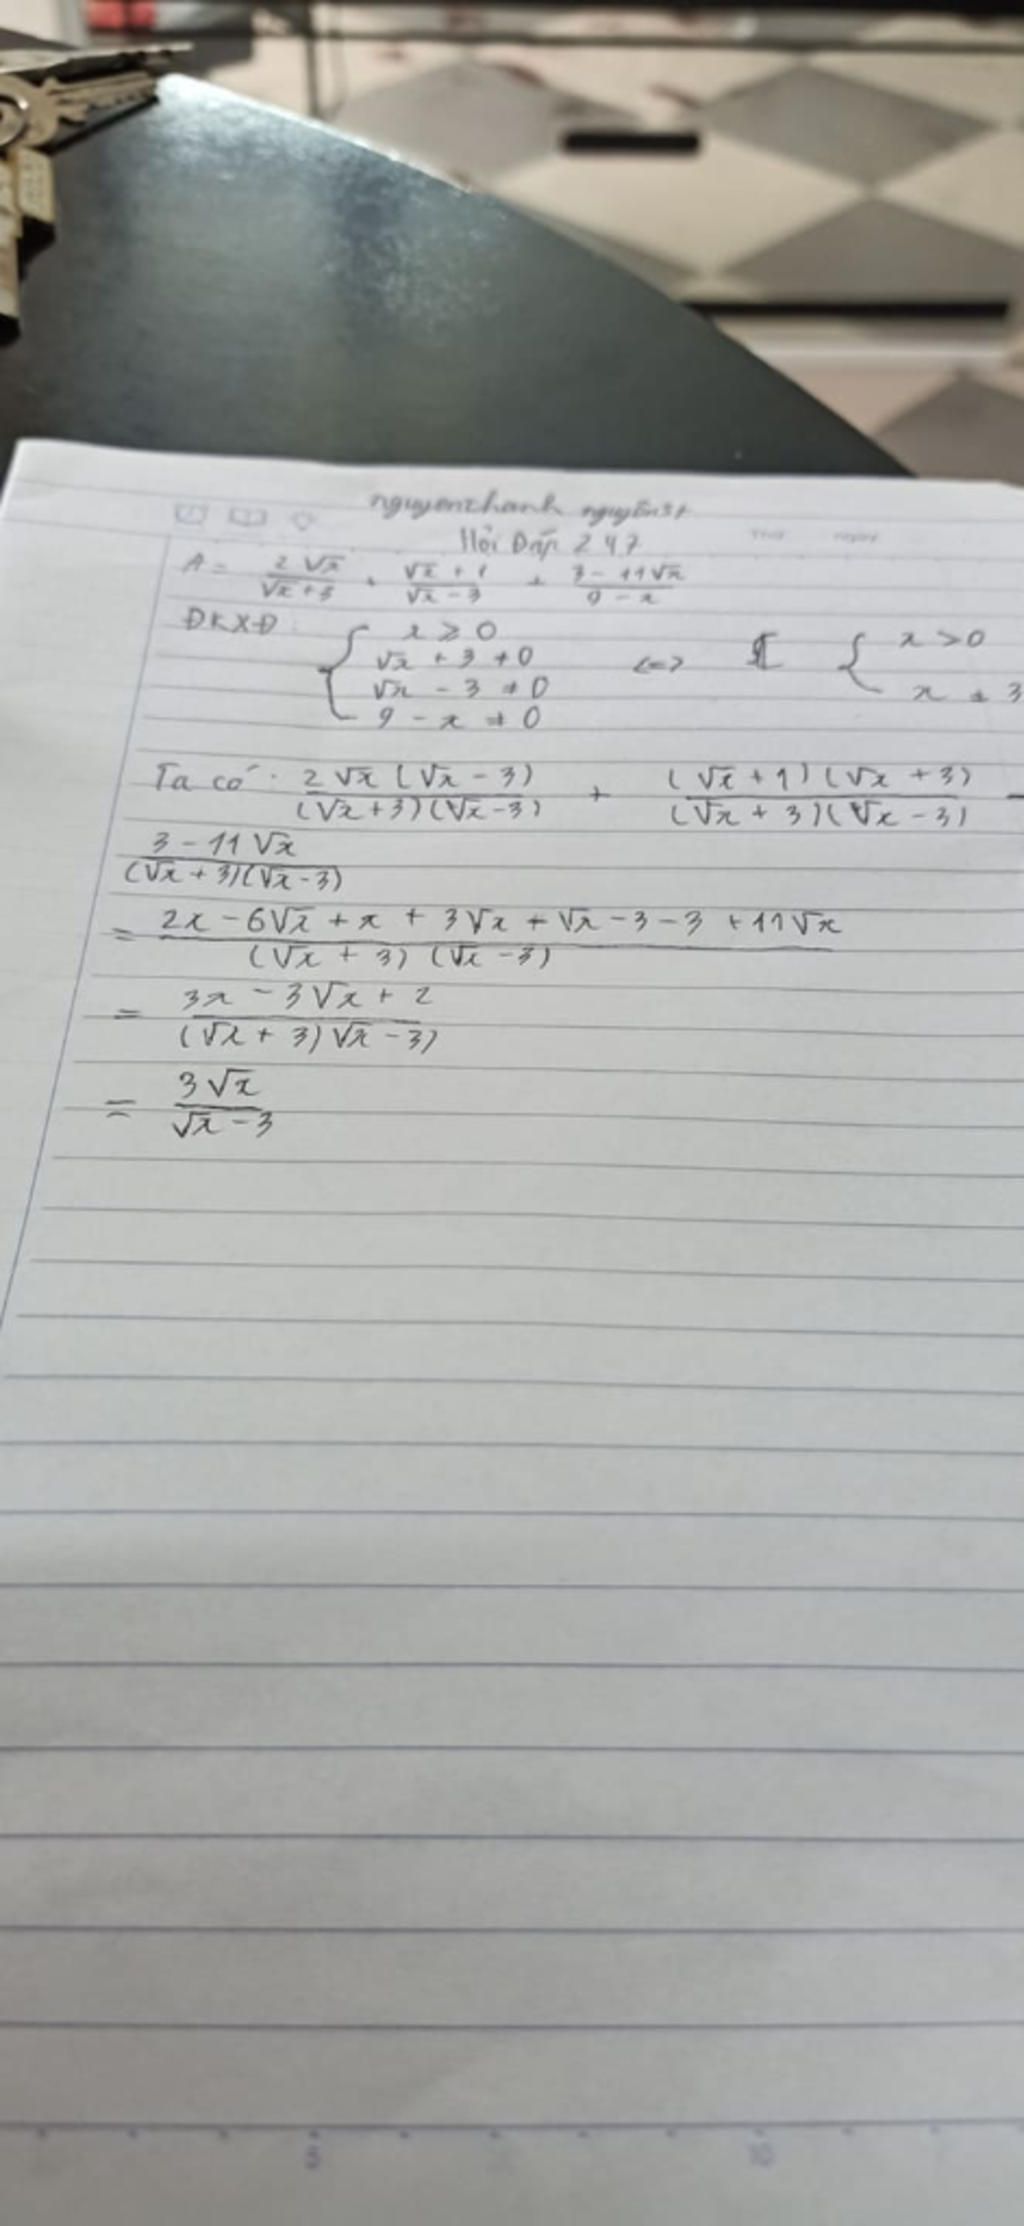 nguyenthanh nguyên31
Hỏi Đáp 247
A = 2√x/(√x+3) + (√x+1)/(√x-3) + (3-11√x)/(9-x)
ĐKXĐ: { x ≥ 0
√x + 3 ≠ 0
√x - 3 ≠ 0
9 - x ≠ 0
<=> { x > 0
x ≠ 3
Ta có: 2√x(√x-3)/((√x+3)(√x-3)) + (√x+1)(√x+3)/((√x+3)(√x-3)) -
(3-11√x)/((√x+3)(√x-3))
= (2x-6√x+x+3√x+√x-3-3+11√x)/((√x+3)(√x-3))
= (3x-3√x+2)/((√x+3)√x-3))
= 3√x/(√x-3)
5 10